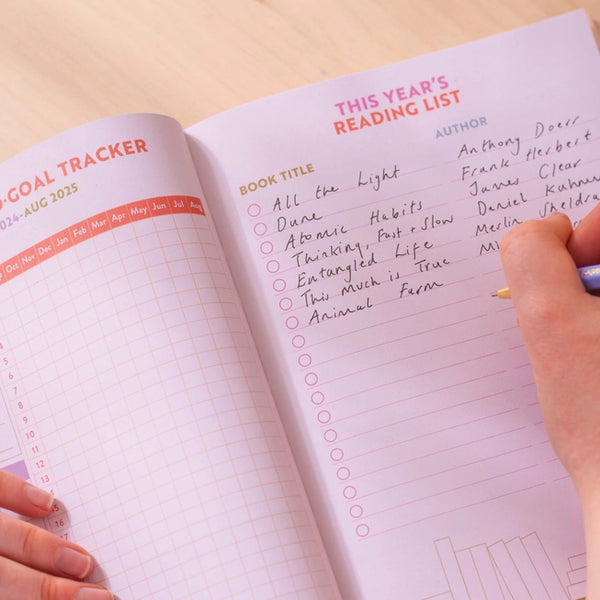 GOAL TRACKER
2024-AUG 2025
Oct Nov Dec Jan Feb Mar Apr May Jun Jul Aug
4
5
6
7
8
9
10
11
12
13
14
15
16
17
THIS YEAR'S
READING LIST
BOOK TITLE AUTHOR
All the Light Anthony Doerr
Dune Frank Herbert
Atomic Habits James Clear
Thinking, Fast + Slow Daniel
Entangled Life Merlin
This much is True
Animal Farm